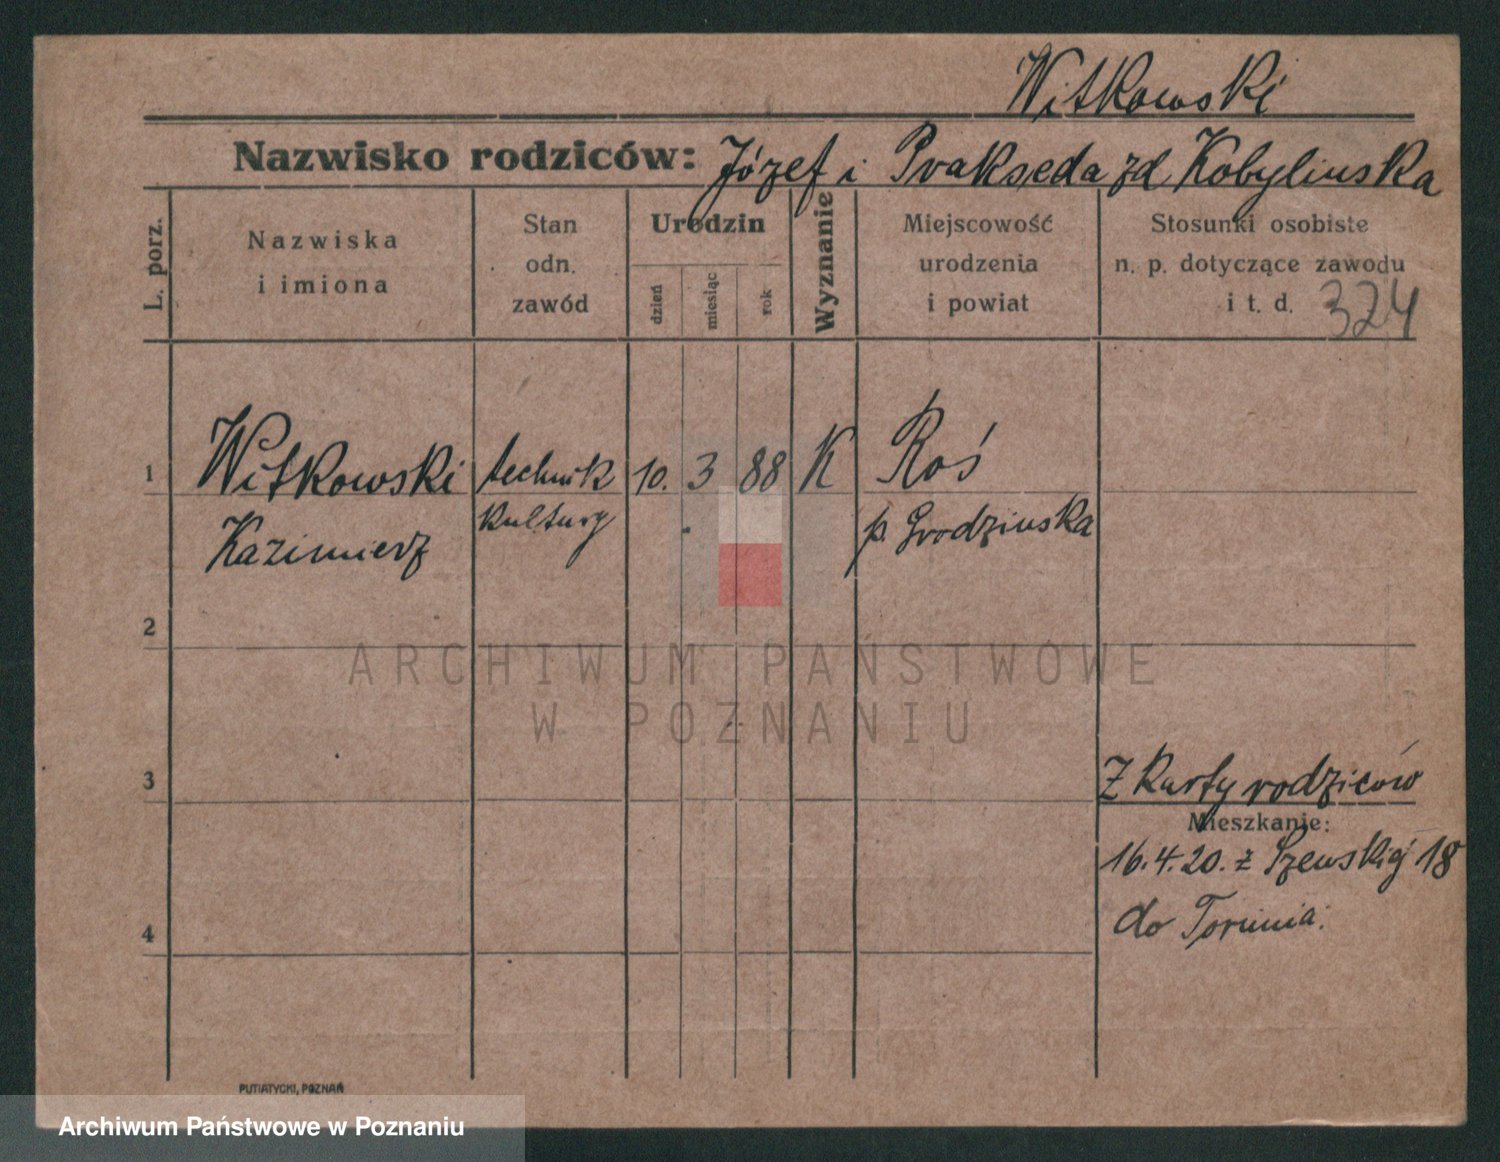 Witkowski
Nazwisko rodziców: Józef i Prakseda zd Kobylinska
L. porz.
Nazwiska
i imiona
Stan
odn.
zawód
Urodzin
dzień
miesiąc
rok
Wyznanie
Miejscowość
urodzenia
i powiat
Stosunki osobiste
n. p. dotyczące zawodu
i t. d. 324
1 Witkowski technik 10. 3 88 K Roś
Kazimierz kultury p. Grodzinska
2
ARCHIWUM PAŃSTWOWE
W POZNANIU
3 Z Karty rodziców
Mieszkanie:
16.4.20. z Szewskiej 18
do Torunia.
4
PUTIATYCKI, POZNAŃ
Archiwum Państwowe w Poznaniu